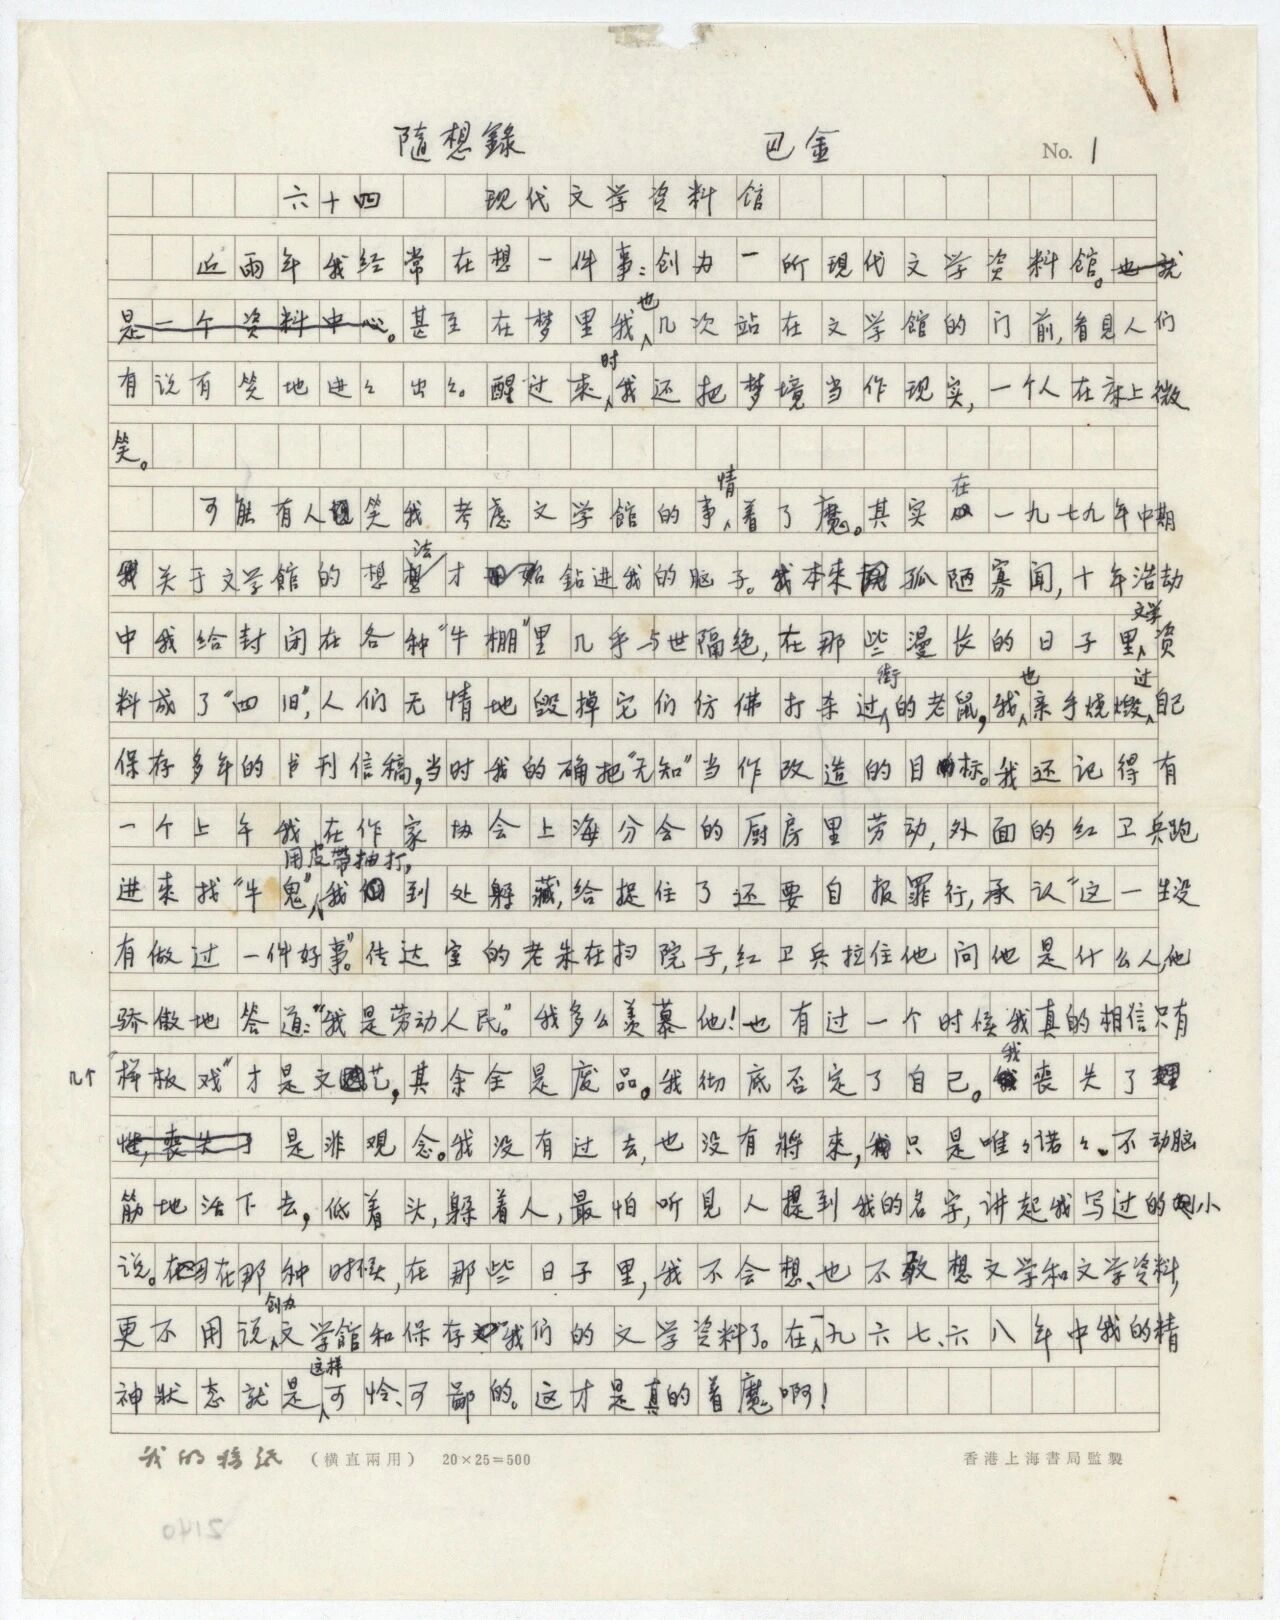 隨想錄 巴金 No. 1
六十四 现代文学资料馆
近兩年我经常在想一件事：创办一所现代文学资料馆。也就
是一个资料中心。甚至在梦里我也几次站在文学馆的门前，看见人们
有说有笑地进々出々。醒过来时，我还把梦境当作现实，一个人在床上微
笑。
可能有人笑我考虑文学馆的事情，着了魔。其实在一九七九年中期
关于文学馆的想法才钻进我的脑子。我本来孤陋寡闻，十年浩劫
中我给封闭在各种“牛棚”里几乎与世隔绝，在那些漫长的日子里，文学资
料成了“四旧”，人们无情地毁掉它们仿佛打杀过街的老鼠，我也亲手烧燬过自己
保存多年的书刊信稿，当时我的确把“无知”当作改造的目标。我还记得有
一个上午我在作家协会上海分会的厨房里劳动，外面的红卫兵跑
进来找“牛鬼”用皮带抽打，我到处躲藏，给捉住了还要自报罪行，承认“这一生没
有做过一件好事”。传达室的老朱在扫院子，红卫兵拉住他问他是什么人，他
骄傲地答道：“我是劳动人民。”我多么羡慕他！也有过一个时候我真的相信只有
几个“样板戏”才是文艺，其余全是废品。我彻底否定了自己。我丧失了理
性，丧失了是非观念。我没有过去，也没有将来，只是唯々诺々、不动脑
筋地活下去，低着头，躲着人，最怕听见人提到我的名字，讲起我写过的小
说。在那种时候，在那些日子里，我不会想、也不敢想文学和文学资料，
更不用说创办文学馆和保存我们的文学资料了。在一九六七、六八年中我的精
神狀态就是这样可怜、可鄙的。这才是真的着魔啊！
我的稿纸 （橫直兩用） 20×25=500 香港上海書局監製